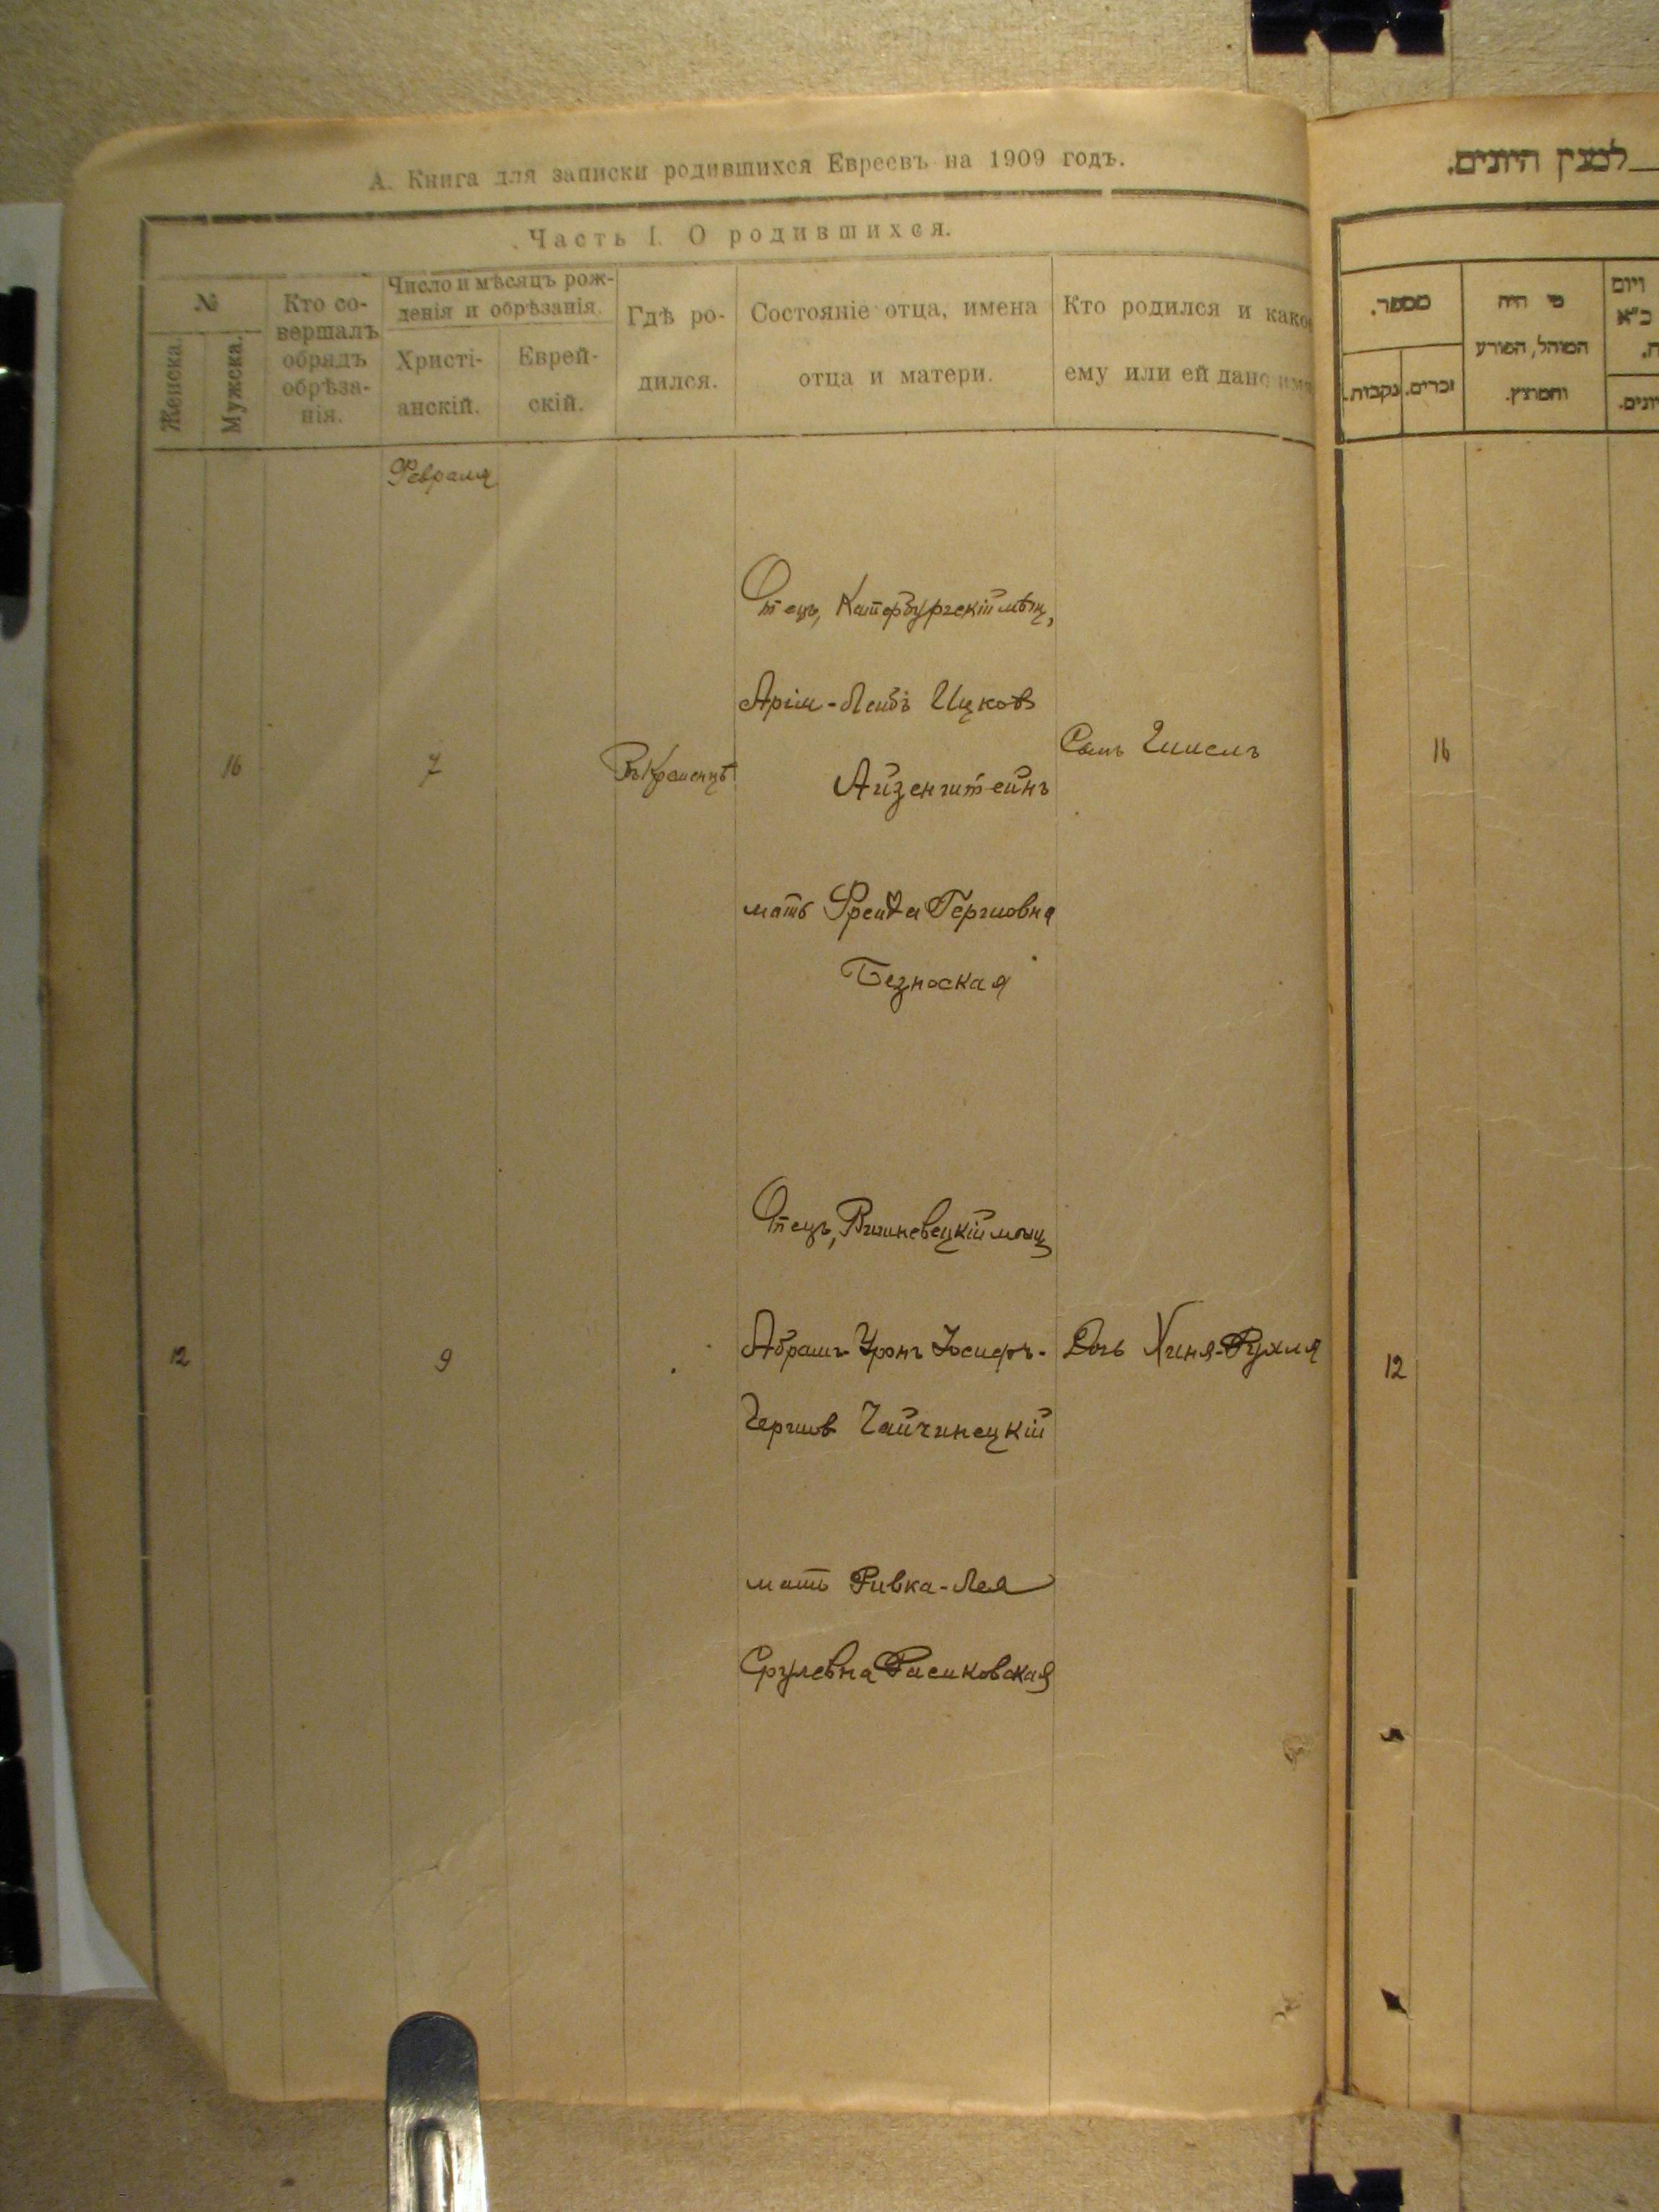 А. Книга для записки родившихся Евреевъ на 1909 годъ.
Часть I. О родившихся.
№
Женска.
Мужска.
Кто со-
вершалъ
обрядъ
обрѣза-
нія.
Число и мѣсяцъ рож-
денія и обрѣзанія.
Христі-
анскій.
Еврей-
скій.
Гдѣ ро-
дился.
Состояніе отца, имена
отца и матери.
Кто родился и како
ему или ей дано имя
Февраля
16
7
Въ Кременцѣ
Отецъ, Катербургскій мѣщ,
Арія-Лейбъ Ицковъ
Айзенштейнъ
мать Фрейда Гершовна
Безноская
Сынъ
12
9
Отецъ, Вишневецкій мѣщ
Абрамъ-Уронъ Іосифъ-
Гершов Чайчинецкій
мать Ривка-Лея
Срулевна
Дочь Хиня-Рухля
לבצין היונים.
מספר.
נקבות.
זכרים.
מי היה
המוהל, הפורע
והמוצץ.
ויום
16
12